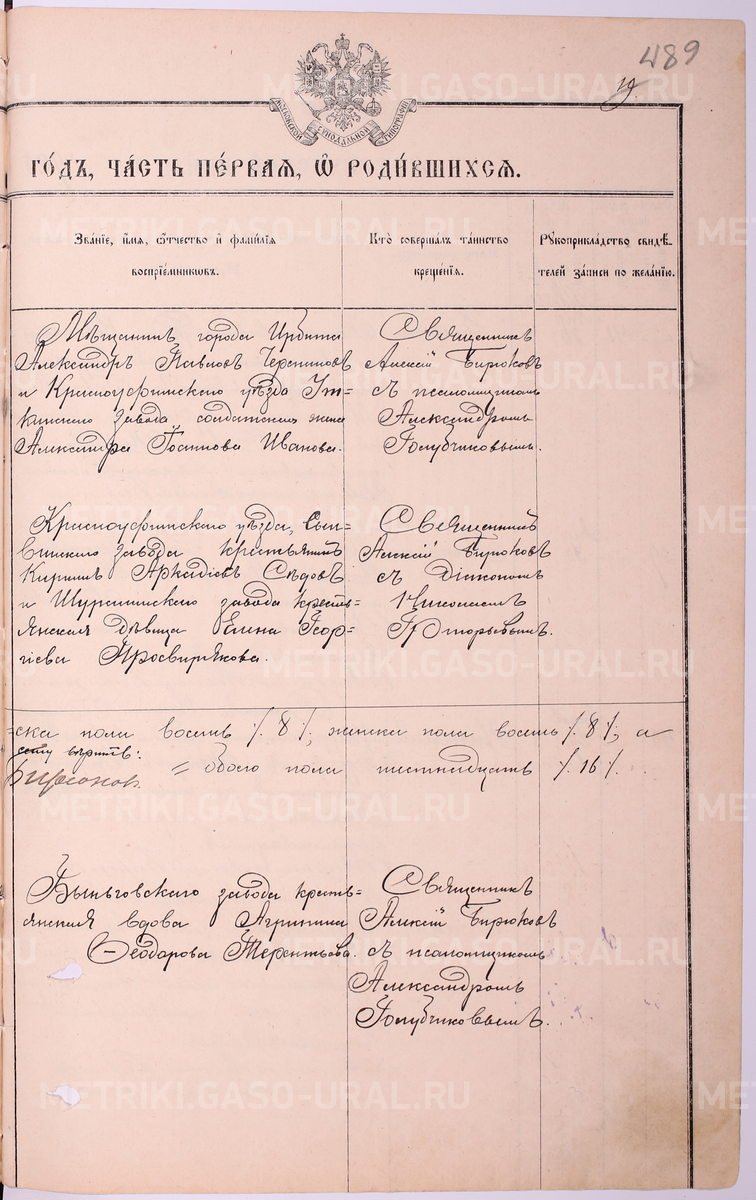 489
19
МОСКОВСКОЙ СѴНОДАЛЬНОЙ ТИПОГРАФІИ
ГО́ДЪ, ЧА́СТЬ ПЕ́РВАЯ, Ѡ҆ РОДИ́ВШИХСЯ.
Зва́ніе, и҆́мя, ѻ҆́тчество и҆ фами́лія
воспріе́мниковъ.
Кто̀ соверша́лъ та́инство
креще́нія.
Рꙋкоприкла́дство свидѣ́-
телей за́писи по жела́нію.
Мѣщанинъ города Ирбита
Александръ Павловъ Черепановъ
и Красноуфимскаго уѣзда Ут-
кинскаго завода солдатская жена
Александра Іоаннова Иванова.
Священникъ
Алексій Бирюковъ
съ псаломщикомъ
Александромъ
Голубчиковымъ.
Красноуфимскаго уѣзда, Сы-
винскаго завода крестьянинъ
Кириллъ Аркадіевъ Сѣдовъ
и Шуралинскаго завода кресть-
янская дѣвица Елена Геор-
гіева Просвирякова.
Священникъ
Алексій Бирюковъ
съ діакономъ
Николаемъ
Григорьевымъ.
ска пола восемь /. 8 /., женска пола восемь /. 8 /., а
обоего пола шестнадцать /. 16 /.
Быньговскаго завода кресть-
янская вдова Агрипина
Ѳеодорова Терентьева.
Священникъ
Алексій Бирюковъ
съ псаломщикомъ
Александромъ
Голубчиковымъ.
METRIKI.GASO-URAL.RU